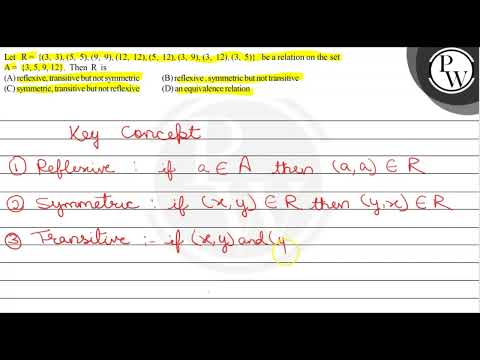 Let R = {(3, 3), (5, 5), (9, 9), (12, 12), (5, 12), (3, 9), (3, 12), (3, 5)} be a relation on the set
A = {3, 5, 9, 12}. Then R is
(A) reflexive, transitive but not symmetric (B) reflexive , symmetric but not transitive
(C) symmetric, transitive but not reflexive (D) an equivalence relation
PW
Key Concept
① Reflexive : if a ∈ A then (a, a) ∈ R
② Symmetric : if (x, y) ∈ R then (y, x) ∈ R
③ Transitive :- if (x, y) and (y